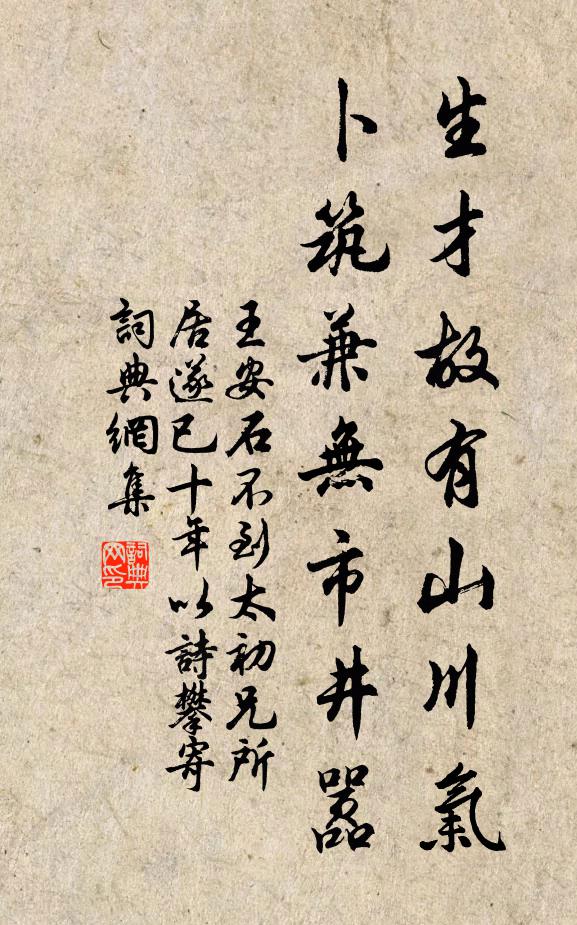 生才故有山川氣
卜筑兼無市井嚣
王安石不到太初兄所
居遂已十年以詩攀寄
詞典網集
詞典
网印